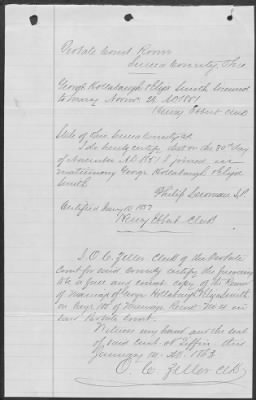 Probate Court Room
Seneca County, Ohio
George Hollabaugh & Eliza Smith licensed
to marry Novem. 26 AD 1851
Henry Ebert Clerk
State of Ohio Seneca County SS
I do hereby certify that on the 30th Day
of November AD 1851 I joined in
matrimony George Hollabaugh & Eliza
Smith
Philip J.P.
Certified 1852
Henry Ebert Clerk
I, O. C. Zeller Clerk of the Probate
Court for said County certify the foregoing
to be a full and correct copy of the Record
of Marriage of George Hollabaugh & Eliza Smith
on Page of Marriage Record in
said Probate Court.
Witness my hand and the seal
of said Court at Tiffin, this
January 10. AD. 1863
O. C. Zeller Clk